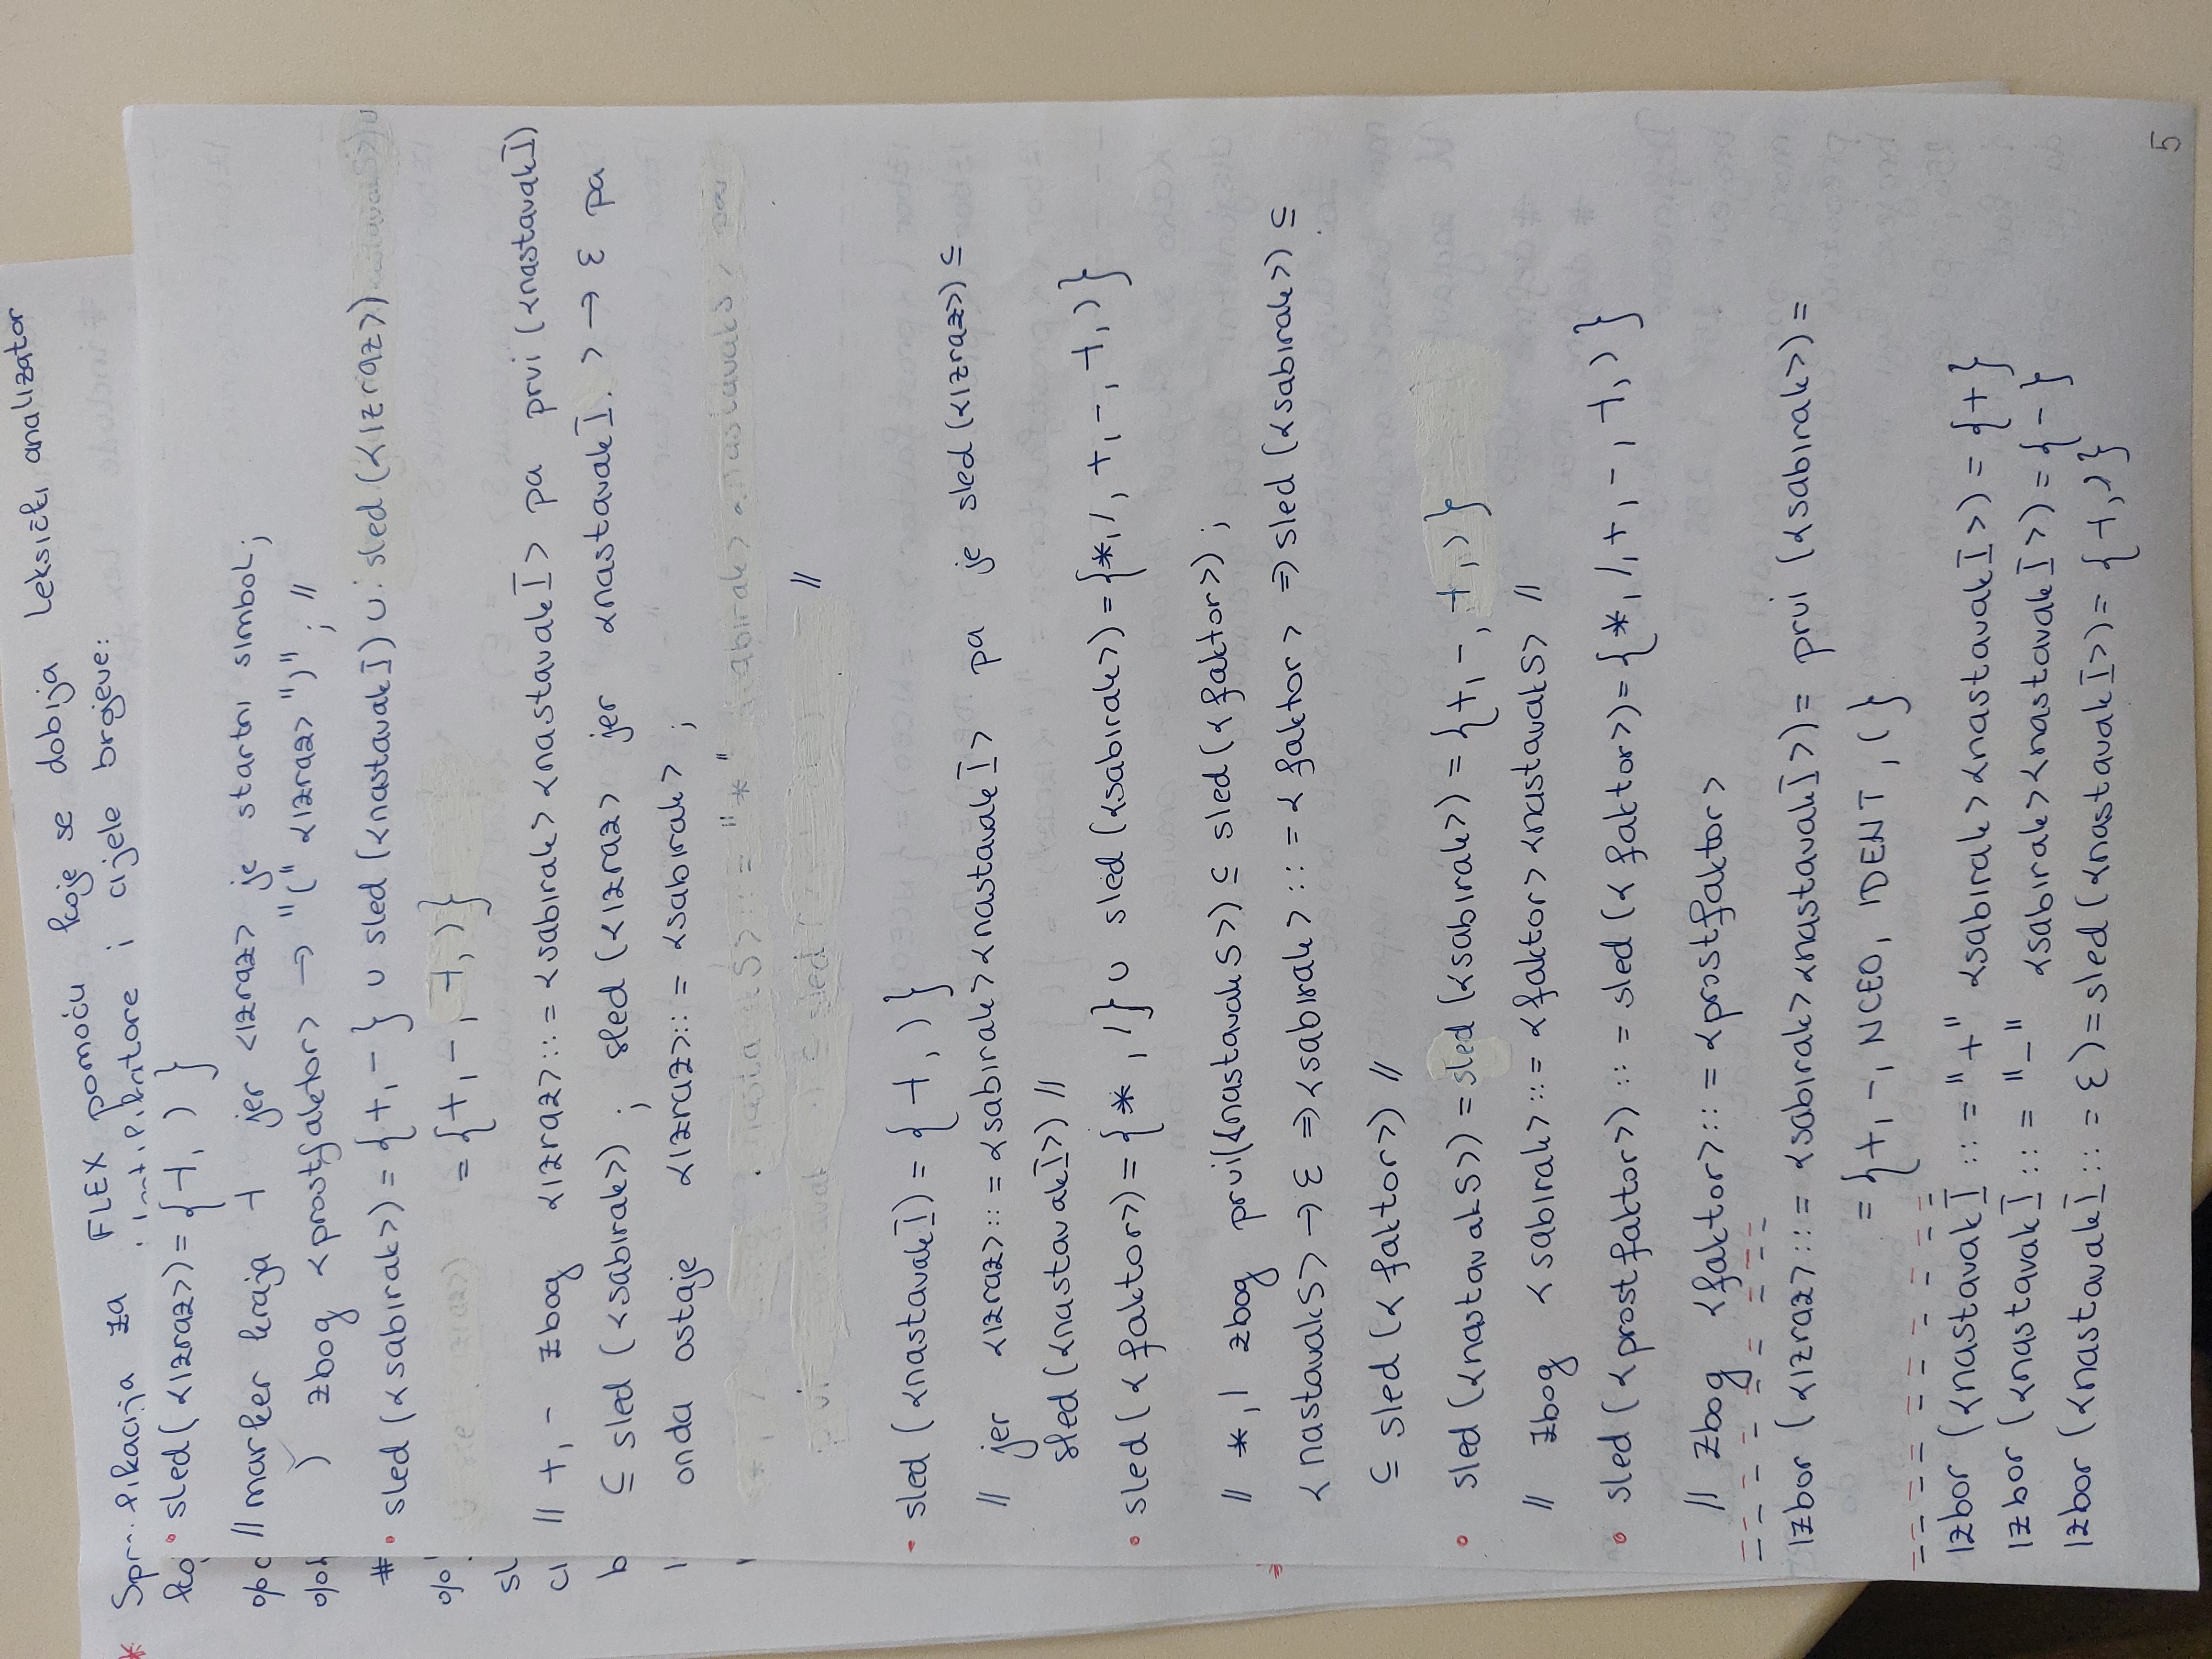 * Sp fikacija za FLEX pomoću koje se dobija leksički analizator
i cijele brojeve:
• sled(<izraz>) = {⊣, ) }
// marker kraja ⊣ jer <izraz> je startni simbol;
) zbog <prostfaktor> → "(" <izraz> ")" ; //
• sled (<sabirak>) = {+, - } ∪ sled (<nastavakI) ∪ sled (<izraz>)
= {+, -, ⊣, )}
// +, - zbog <izraz>::= <sabirak><nastavakI> pa prvi (<nastavakI)
⊆ sled (<sabirak>) ; sled (<izraz> jer <nastavakI. > → ε pa
onda ostaje <izraz>::= <sabirak> ;
//
- sled (<nastavakI) = { ⊣, ) }
// jer <izraz>::= <sabirak><nastavakI> pa je sled (<izraz>) ⊆
sled (<nastavakI>) //
• sled (< faktor>) = {* , /} ∪ sled (<sabirak>) = {*, /, +, -, ⊣, )}
// *, / zbog prvi(<nastavakS>) ⊆ sled (< faktor>) ;
< nastavakS> → ε ⇒ <sabirak> ::= < faktor> ⇒ sled (<sabirak>) ⊆
⊆ sled (< faktor>) //
• sled (<nastavakS>) = sled (<sabirak>) = {+, -, ⊣, )}
// zbog <sabirak>::= <faktor><nastavakS> //
• sled (<prostfaktor>) ::= sled (< faktor>) = {*, /, +, -, ⊣, ) }
// zbog <faktor>::= <prostfaktor>
Izbor (<izraz>::= <sabirak><nastavakI>) = prvi (<sabirak>) =
= {+, -, NCEO, IDENT, ( }
Izbor (<nastavakI ::= "+" <sabirak><nastavakI>) = {+}
Izbor (<nastavakI ::= "-" <sabirak><nastavakI>) = { - }
Izbor (<nastavakI ::= ε) = sled (<nastavakI>) = { ⊣, ) }
5